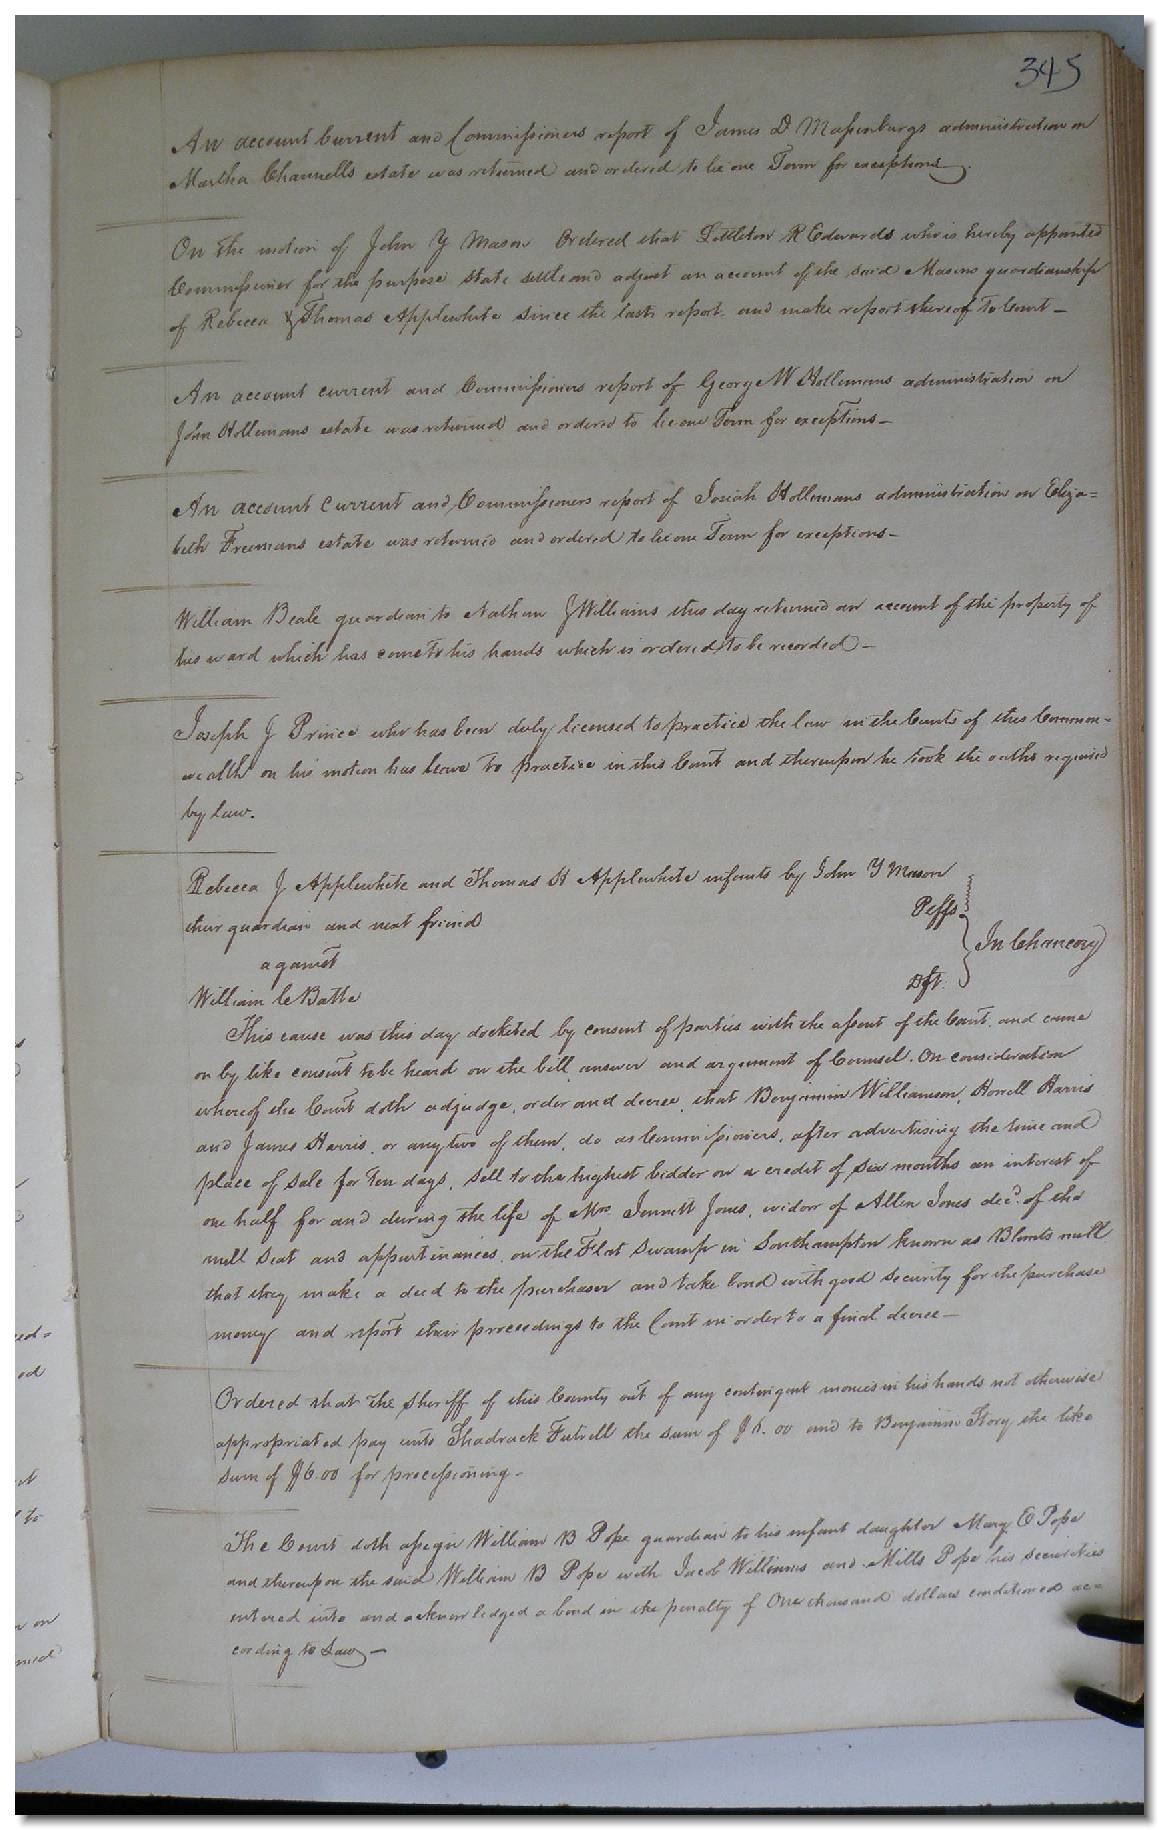 345
An account Current and Commissioners report of James D Massenburgs administration on
Martha Channells estate was returned and ordered to lie one Term for exceptions.
On the motion of John Y Mason Ordered that Littleton R Edwards who is hereby appointed
Commissioner for the purpose state settle and adjust an account of the said Masons guardianship
of Rebecca & Thomas Applewhite since the last report. and make report thereof to Court —
An account current and Commissioners report of George W Hollemans administration on
John Hollemans estate was returned and ordered to lie one Term for exceptions —
An account Current and Commissioners report of Josiah Hollemans administration on Eliza=
beth Freemans estate was returned and ordered to lie one Term for exceptions —
William Beale guardian to Nathan J Williams this day returned an account of the property of
his ward which has come to his hands which is ordered to be recorded —
Joseph J Prince who has been duly licensed to practice the law in the Courts of this Common=
wealth on his motion has leave to practice in this Court and thereupon he took the oaths required
by law.
Rebecca J Applewhite and Thomas H Applewhite infants by John Y Mason
their guardian and next friend Peffs
against In Chancery
William C Batte Dft.
This cause was this day docketed by consent of parties with the assent of the Court, and came
on by like consent to be heard on the bill answer and argument of Counsel. On consideration
whereof the Court doth adjudge, order and decree, that Benjamin Williamson, Howell Harris
and James Harris, or any two of them, do as Commissioners, after advertising the time and
place of sale for ten days, sell to the highest bidder on a credit of six months an interest of
one half for and during the life of Mrs. Jennett Jones, widow of Allen Jones decd. of the
mill seat and appurtinances, on the Flat Swamp in Southampton known as Blunts mill
that they make a deed to the purchaser and take bond with good security for the purchase
money and report their proceedings to the Court in order to a final decree —
Ordered that the Sheriff of this County out of any contingent monies in his hands not otherwise
appropriated pay unto Shadrack Futrell the sum of $6.00 and to Benjamin Story the like
sum of $6.00 for processioning.
The Court doth assign William B Pope guardian to his infant daughter Mary E Pope
and thereupon the said William B Pope with Jacob Williams and Mills Pope his securities
entered into and acknowledged a bond in the penalty of One thousand dollars conditioned ac=
cording to Law —